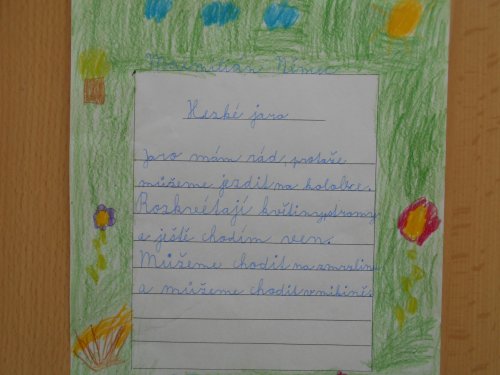 Maxmilián Němec
Hezké jaro
Jaro mám rád, protože
můžeme jezdit na koloběžce.
Rozkvétají květiny, stromy
a ještě chodím ven.
Můžeme chodit na zmrzlinu
a můžeme chodit v mikině.